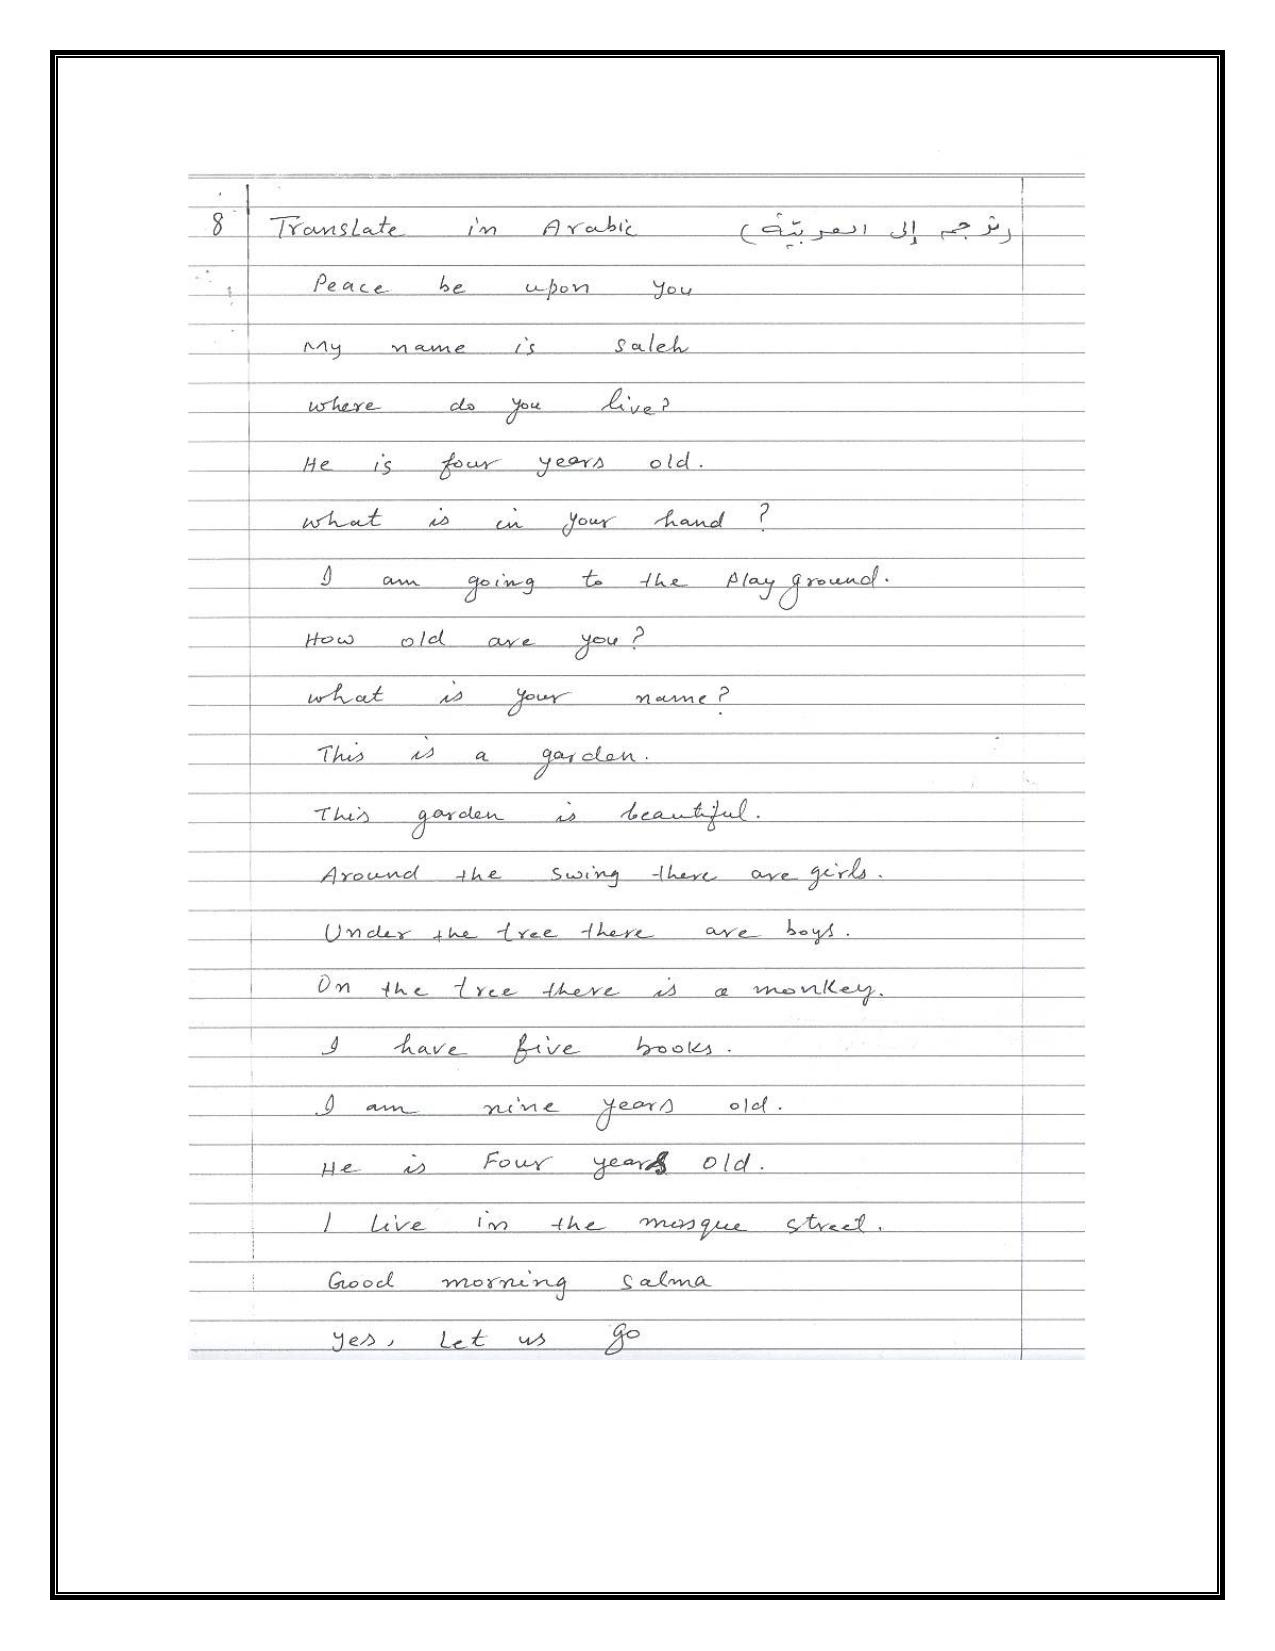 8 Translate in Arabic (ترجم إلى العربيّة)
Peace be upon you
My name is saleh
where do you live?
He is four years old.
what is in your hand ?
I am going to the play ground.
How old are you?
what is your name?
This is a garden.
This garden is beautiful.
Around the swing there are girls.
Under the tree there are boys.
On the tree there is a monkey.
I have five books.
I am nine years old.
He is Four years old.
I live in the mosque street.
Good morning salma
yes, Let us go